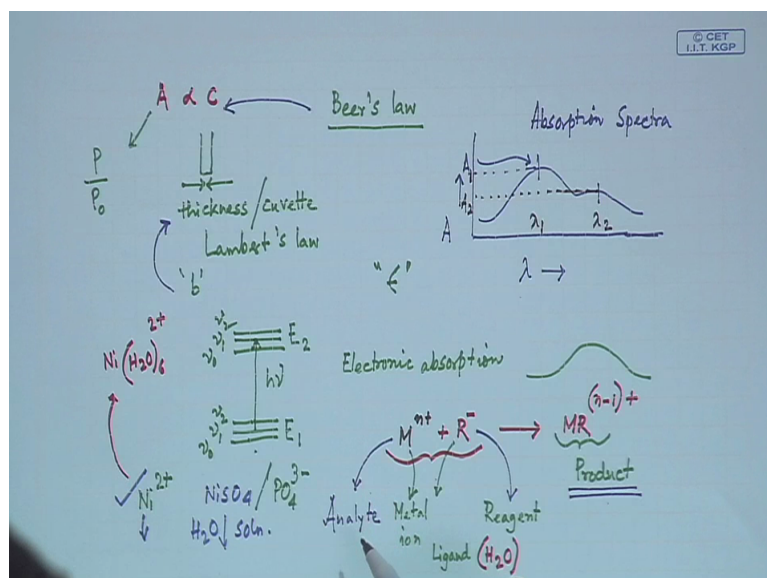 © CET
I.I.T. KGP
A ∝ C
Beer's law
Absorption Spectra
P
P₀
thickness / cuvette
Lambert's law
'b'
"ε"
A₁
A₂
A
λ₁
λ₂
λ →
Ni(H₂O)₆²⁺
ν₂
ν₁
ν₀
E₂
hν
ν₂
ν₁
ν₀
E₁
Electronic absorption
Mⁿ⁺ + R⁻ → MR⁽ⁿ⁻¹⁾⁺
Product
Ni²⁺
NiSO₄ / PO₄³⁻
H₂O ↓ soln.
Analyte
Metal
ion
Reagent
Ligand (H₂O)